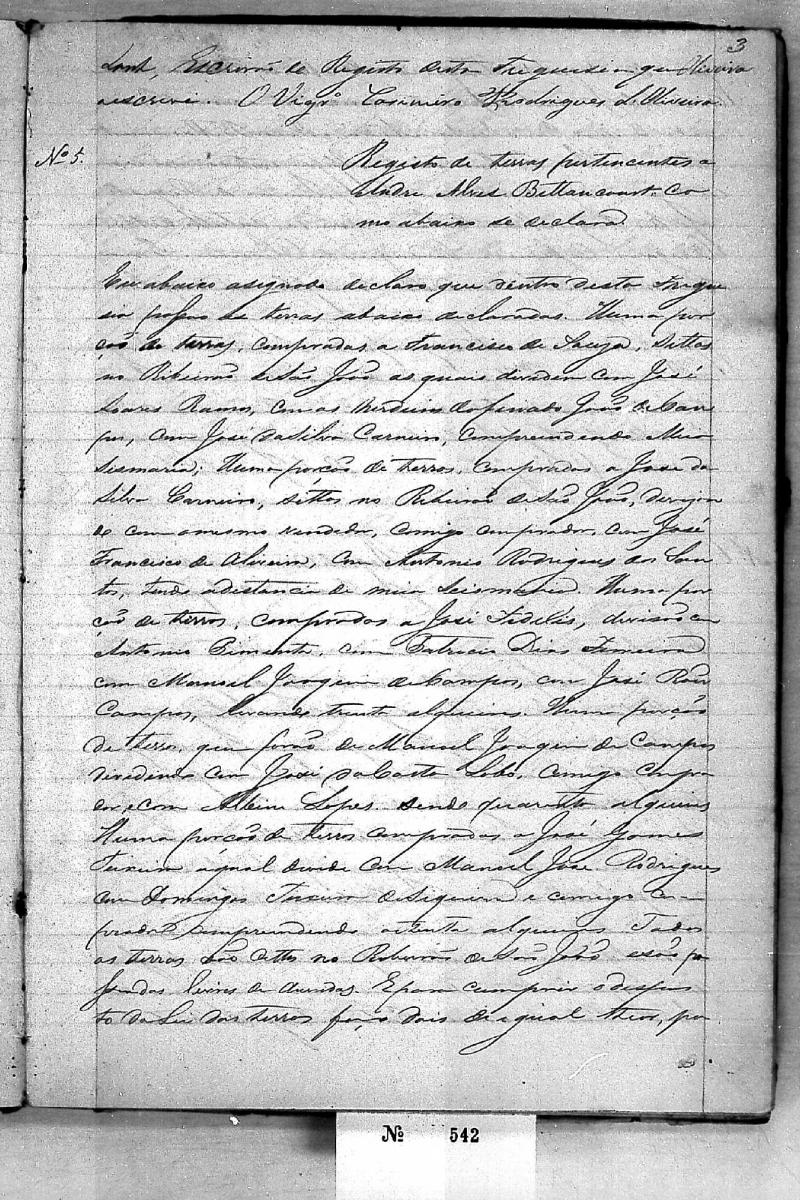 3
Escrivaõ do Registo desta Freguesia que Oliveira
escrevi. O Vigrº Casimiro Rodrigues d'Oliveira
Nº 5.
Registo de terras pertencentes a
Andre Alves Bettancourt. Co
mo abaixo se declara
Eu abaixo asignado declaro que dentro desta Fregue
sia posuo as terras abaixo declaradas. Huma por
çaõ de terras, compradas a Francisco de Souza, sittas
no Ribeiraõ de Saõ Joaõ as quais dividem com José
Soares Ramos, com os herdeiros do finado Joaõ de Cam
pos, com José da Silva Carneiro, comprendendo Meia
Sesmaria; Huma porcaõ de terras, compradas a Jose da
Silva Carneiro, sittas no Ribeiraõ de Saõ Joaõ,
com o mesmo vendedor, comigo comprador, com José
Francisco de Oliveira, com Antonio Rodrigues dos San
tos, tendo a distancia de meia Seismaria. Huma por
çaõ de terras, compradas a José Fidelis, com
Antonio Pimenta, com Patricio Dias Ferreira
com Manoel Joaquim de Campos, com José
Campos, levando trinta alqueires. Huma porçaõ
de terras, que foraõ de Manoel Joaquim de Campos
dividindo com José da Costa Lobo, comigo compra
dor e com Lopes sendo quarenta alqueires
Huma porcaõ de terras compradas a José Gomes
Teixeira a qual divide com Manoel Jose Rodrigues
com Domingos Teixeira de Siqueira e comigo com
prador comprendendo oitenta alqueires Todas
as terras saõ sittas no Ribeiraõ de Saõ Joaõ e saõ po
ssuidas livres de duvidas. E para cumprir o dispos
to da Lei das terras faço dois de igual theor, pa
Nº 542